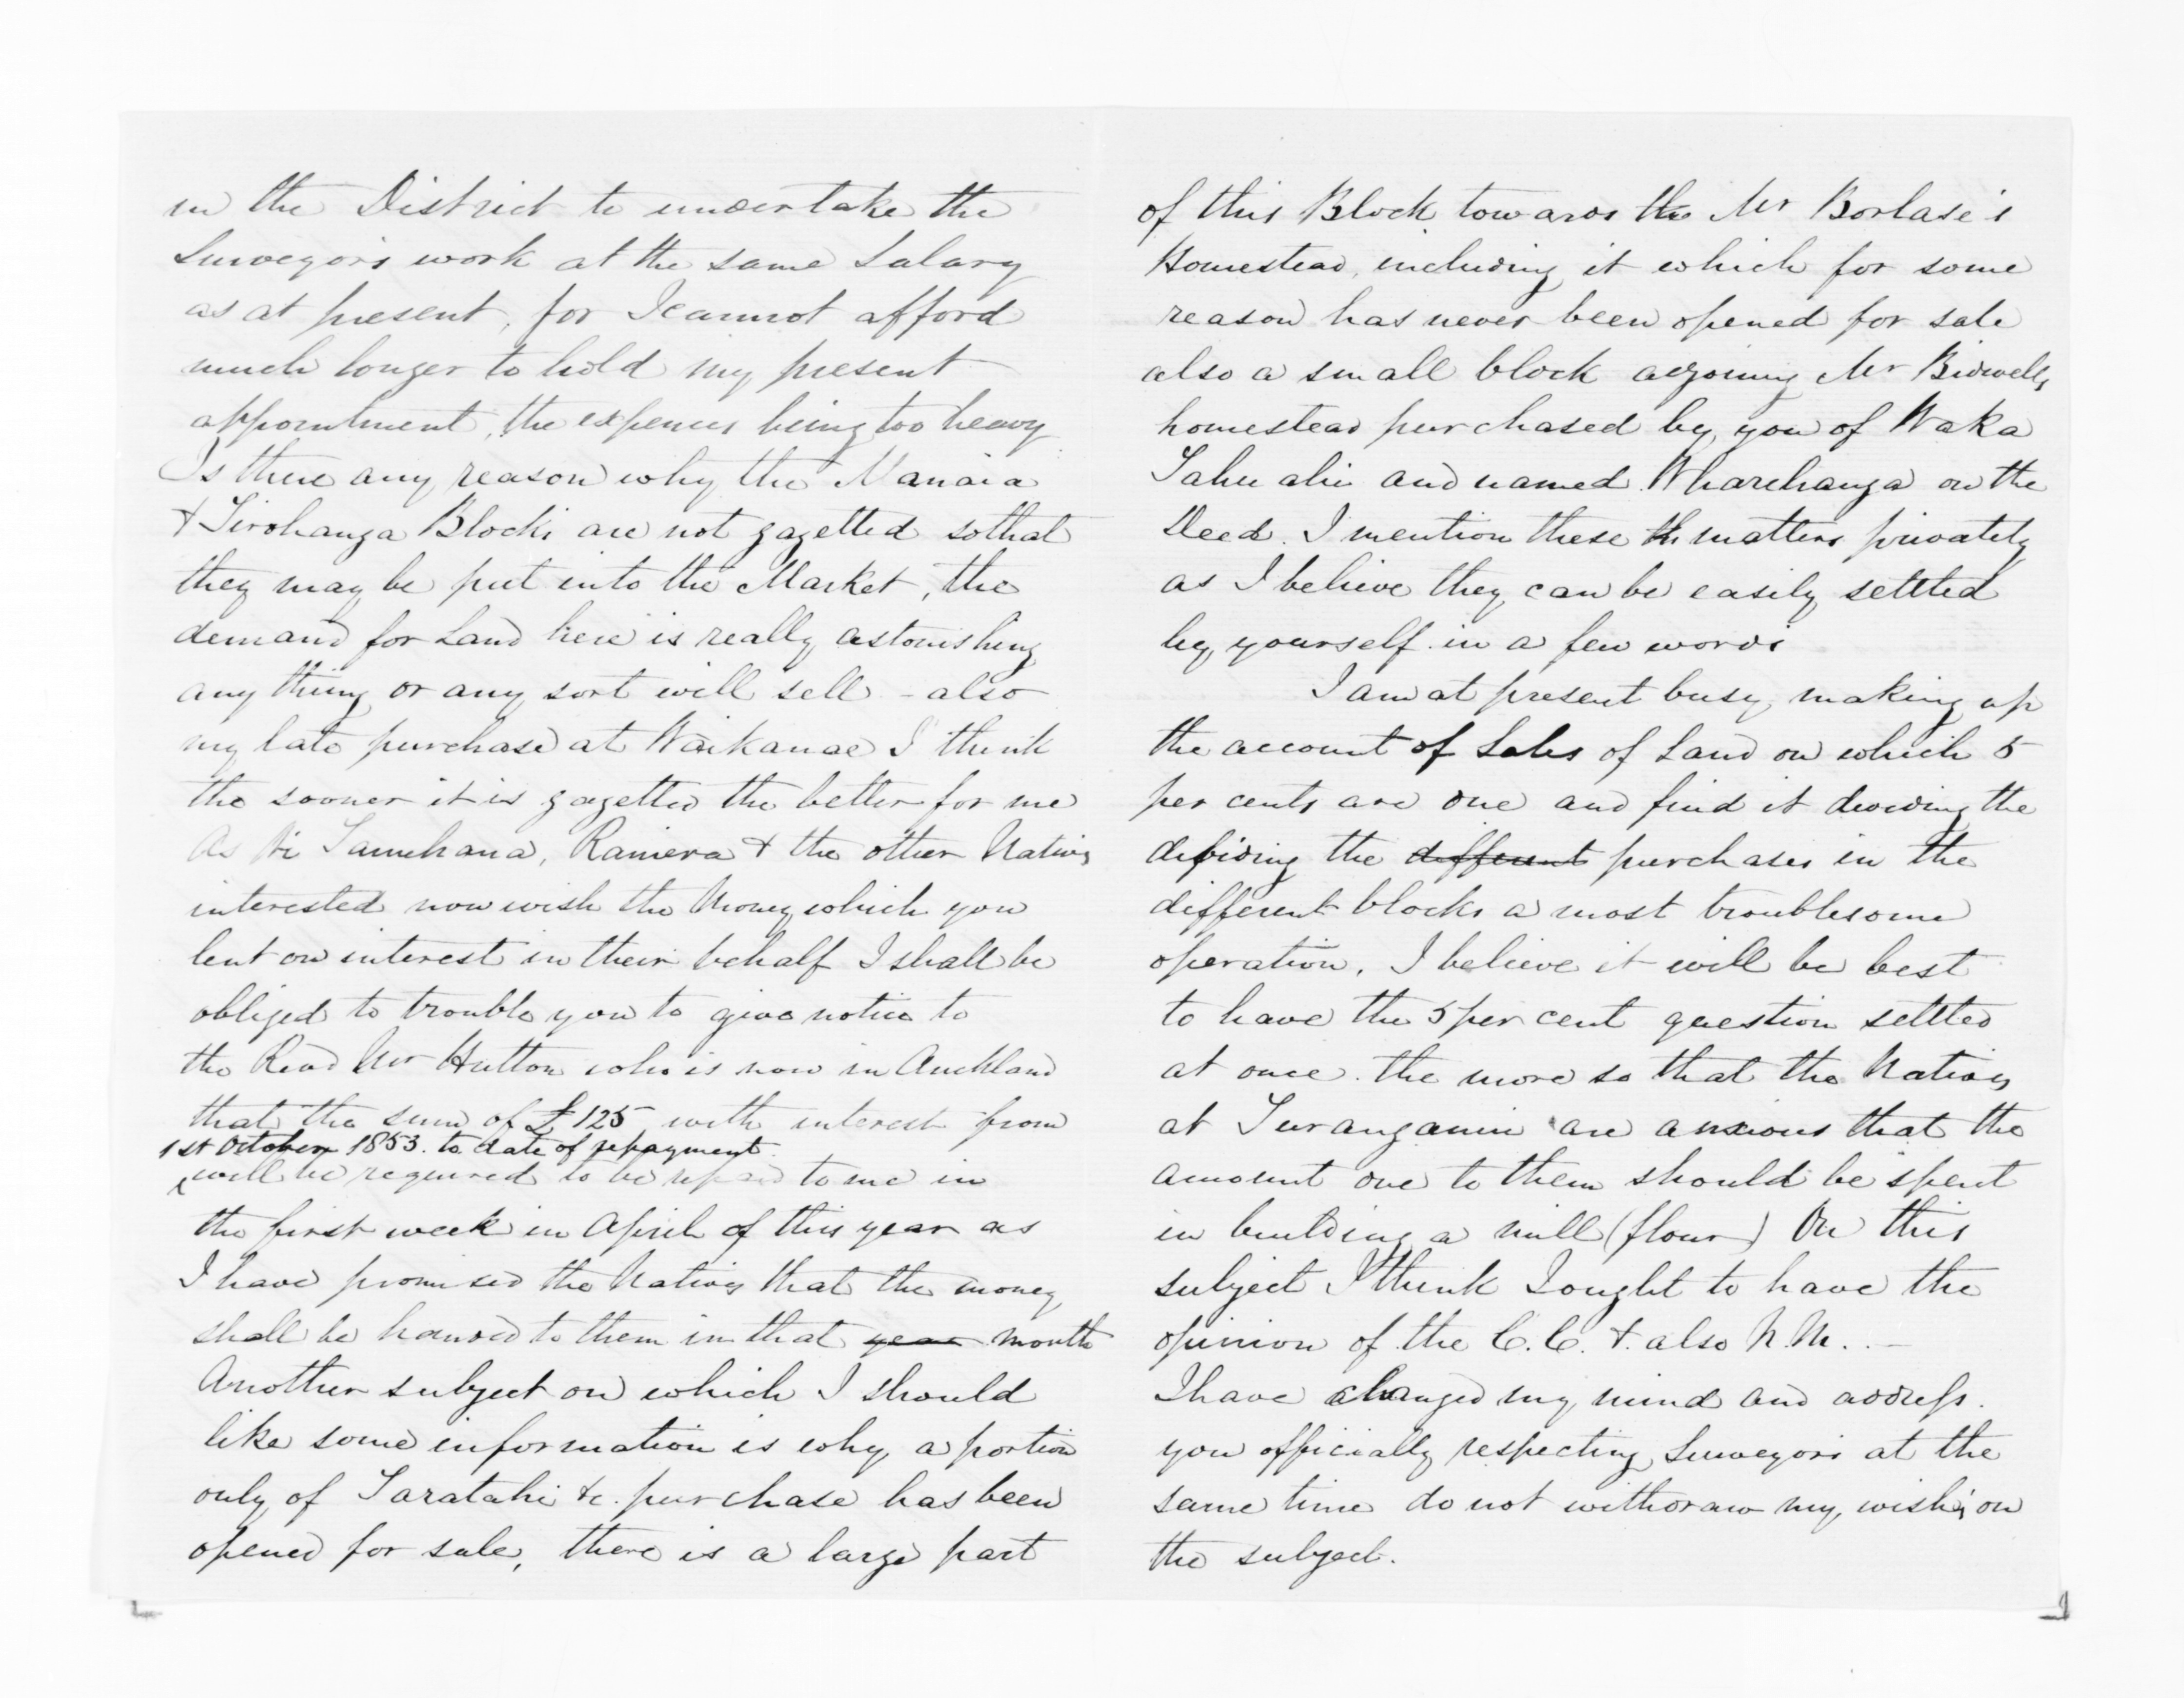 in the District to undertake the
Surveyors work at the same Salary
as at present, for I cannot afford
much longer to hold my present
appointment, the expenses being too heavy
Is there any reason why the Manaia
& Tirohanga Blocks are not gazetted so that
they may be put into the Market, the
demand for Land here is really astonishing
any thing or any sort will sell - also
my late purchase at Waikanae I think
the sooner it is gazetted the better for me
As Wi Tamehana, Raniera & the other Natives
interested now wish the Money which you
lent on interest in their behalf I shall be
obliged to trouble you to give notice to
the Revd Mr Hutton who is now in Auckland
that the sum of £125 with interest from
1st October 1853. to date of repayment.
will be required to be repaid to me in
the first week in April of this year as
I have promised the Natives that the money
shall be handed to them in that year month
Another subject on which I should
like some information is why a portion
only of Taratahi &c. purchase has been
opened for sale, there is a large part
of this Block towards the Mr Borlase's
Homestead, including it which for some
reason has never been opened for sale
also a small block adjoining Mr Bidwells
homestead purchased by you of Waka
Tahu ahi and named Wharehanga on the
Deed. I mention these th matters privately
as I believe they can be easily settled
by yourself in a few words
I am at present busy making up
the account of Sales of Land on which 5
per cents are due and find it dividing the
defining the different purchases in the
different blocks a most troublesome
operation, I believe it will be best
to have the 5 per cent question settled
at once. the more so that the Natives
at Turanganui are anxious that the
amount due to them should be spent
in building a mill (flour) On this
subject I think I ought to have the
opinion of the C.C. & also N.M. . -
I have changed my mind and address
you officially respecting Surveyors at the
same time do not withdraw my wishes on
the subject.